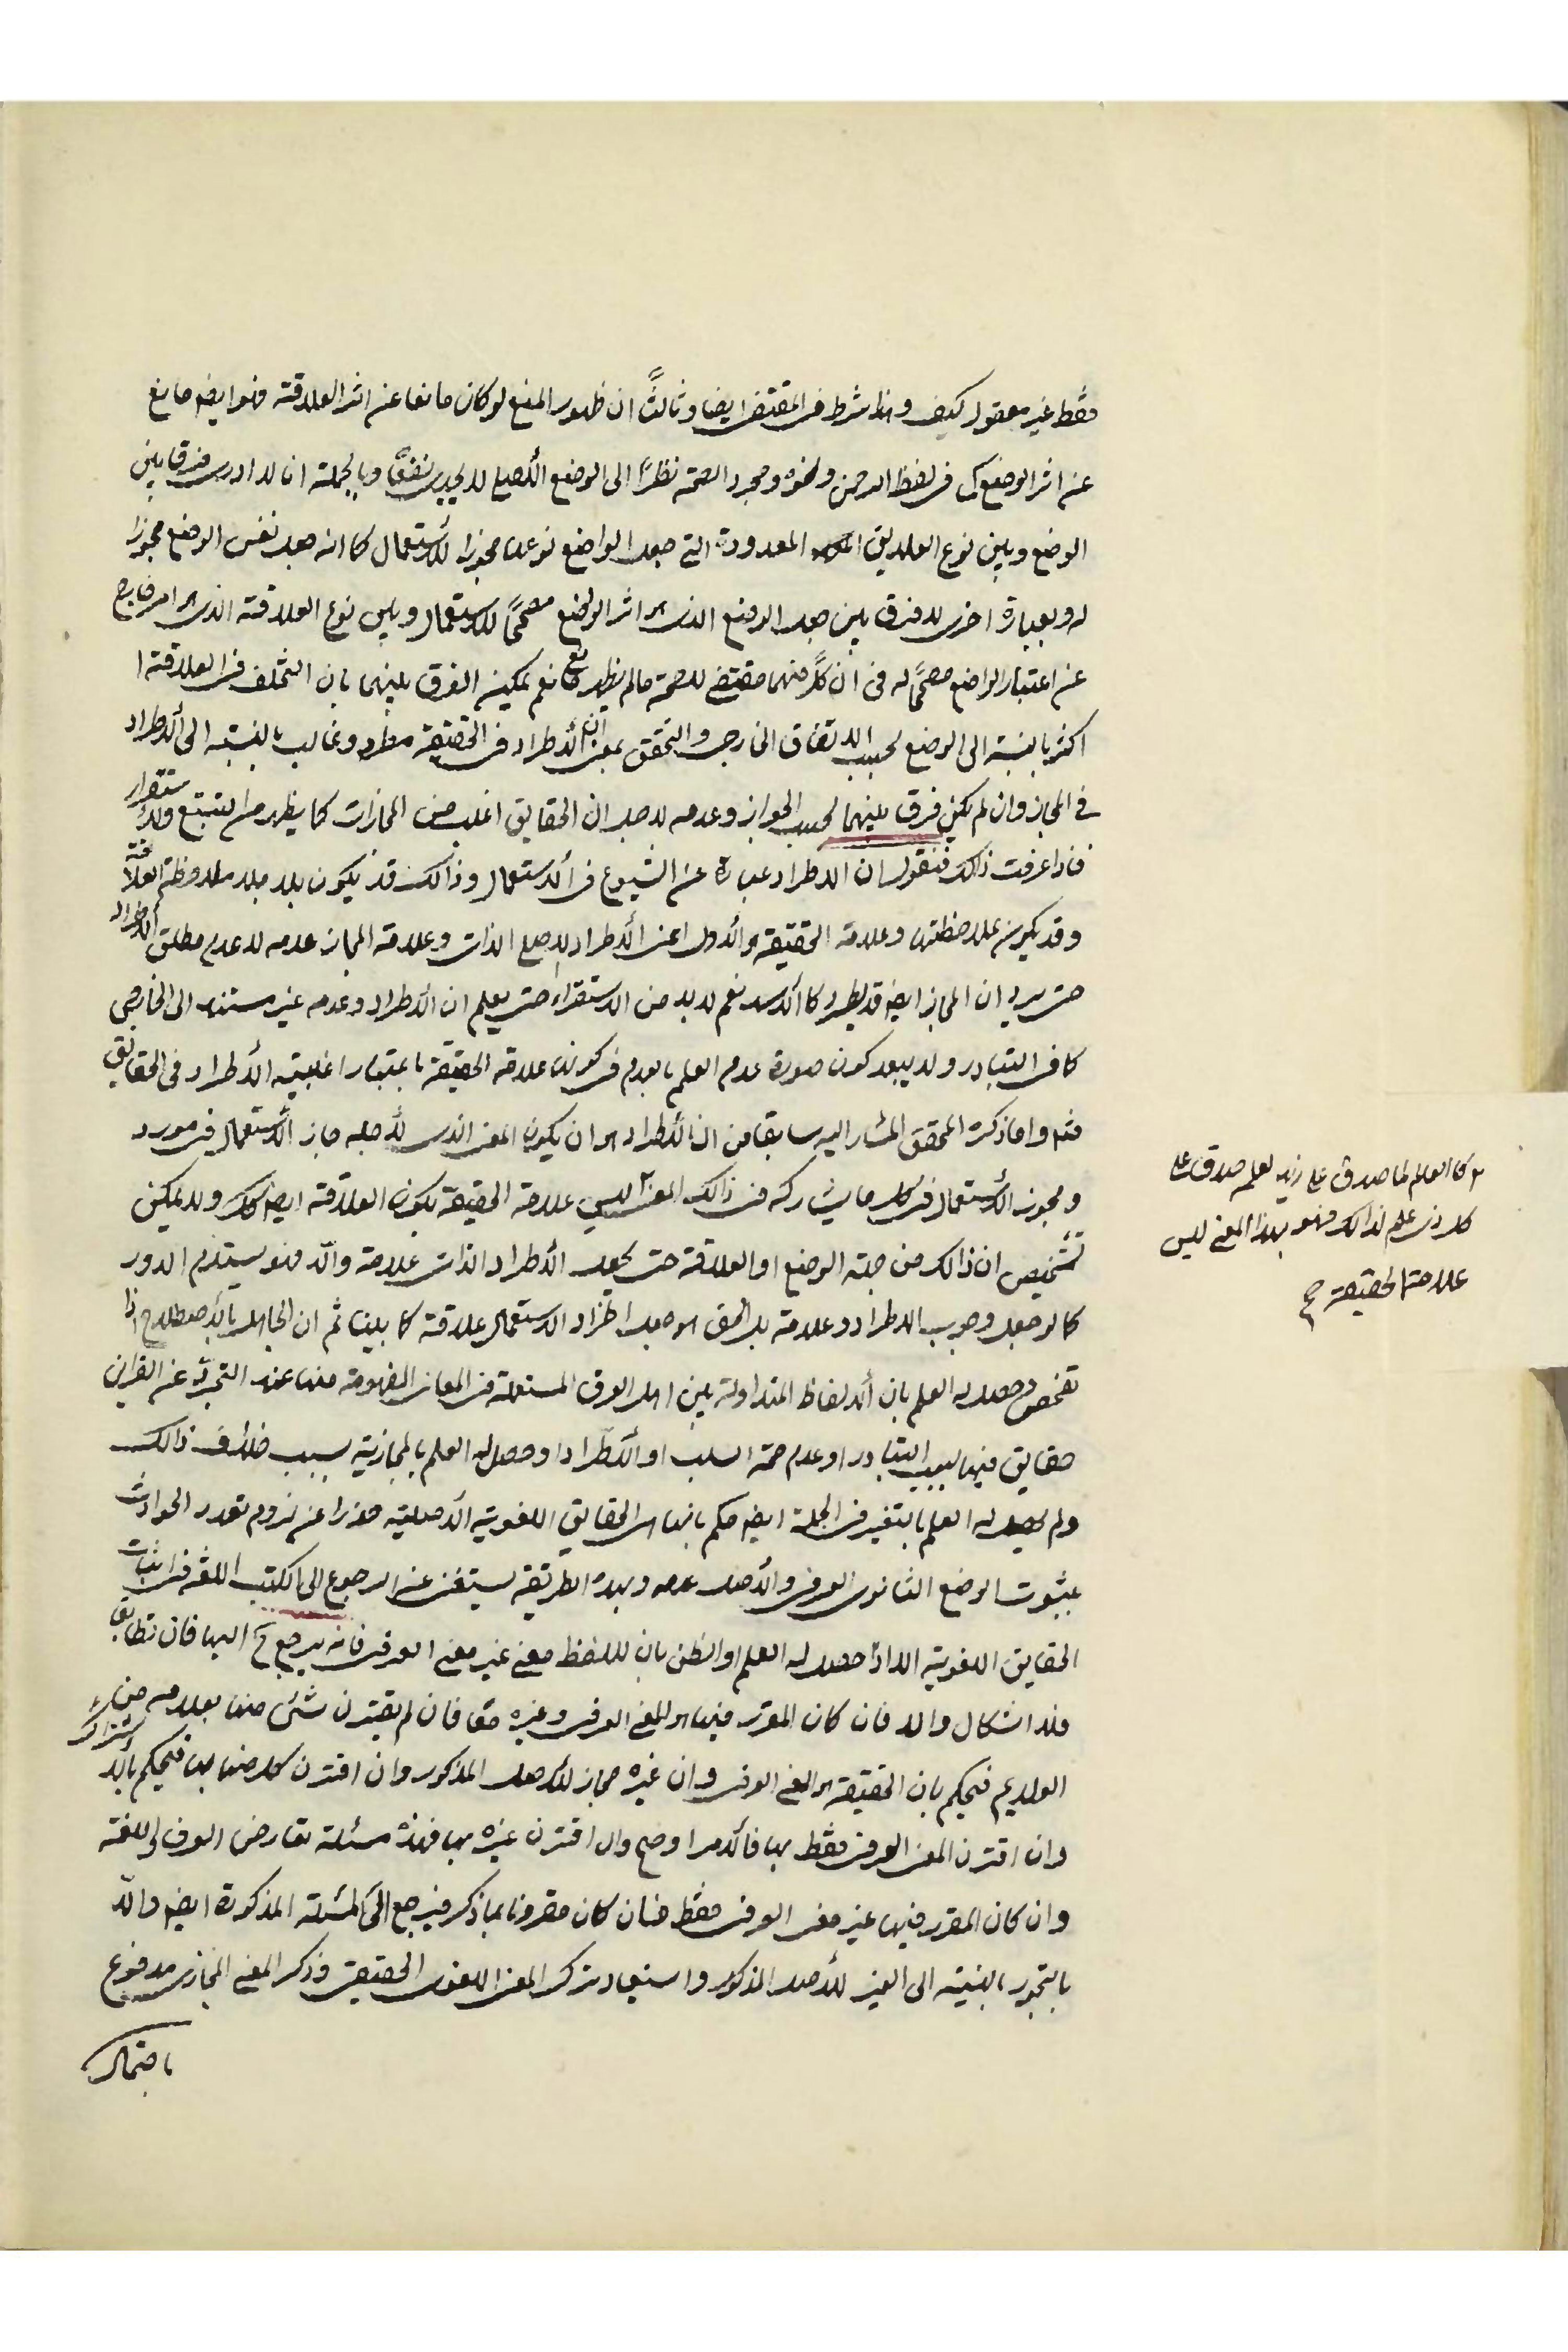 فقط غير معقول كيف وهذا شرط فى المقتضى ايضا وثالثاً ان ظهور المنع لو كان مانعا عن اثر العلاقة فهو ايضا مانع
عن اثر الوضع كما فى لفظ الرحمن ونحوه ومجرد الصحة نظراً الى الوضع الأصلى لا يجدى نفعاً وبالجملة انا لا ادرى فرقا بين
الوضع وبين نوع العلايق المعدودة التى جعل الواضع نوعها مجوزا للأستعمال كما انه جعل نفس الوضع مجوزا
له وبعبارة اخرى لا فرق بين جعل الوضع الذى هو اثر الواضع مصححاً للاستعمال وبين نوع العلاقة الذى هو امر خارج
عن اعتبار الواضع مصححاً له فى ان كلاً منهما مقتضى للصحة ما لم يظهر مانع نعم يمكن الفرق بينهما بان التخلف فى العلاقة
اكثر بالنسبة الى الوضع بحسب الاتفاق الخارجى والتحقق بمعنى ان الأطراد فى الحقيقة مطرد وغالب بالنسبة الى الأطراد
فى المجاز وان لم يكن فرق بينهما بحسب الجواز وعدمه لاجل ان الحقايق اغلب من المجازات كما يظهر من التتبع والاستقرار
فاذا عرفت ذلك فنقول ان الاطراد عبارة عن الشيوع فى الاستعمال وذالك قد يكون بلا ملاحظة العلاقة
وقد يكون بملاحظتها وعلامة الحقيقة هو الأول اعنى الأطراد لاجل الذات وعلامة المجاز عدمه لا عدم مطلق الاطراد
حتى يرد ان المجاز ايضا قد يطرد كالأسد نعم لا بد من الاستقراء حتى يعلم ان الأطراد وعدمه غير مستند الى الخارجى
كما فى التبادر ولا يبعد كون صورة عدم العلم بالعدم فى كونها علامة الحقيقة باعتبار اغلبية الأطراد فى الحقايق
فتم واما ذكره المحقق المشار اليه سابقا من ان الأطراد هو ان يكون المعنى الذى لأجله جاز الأستعمال فى مورد
ويجوز الأستعمال فى كل ما يشاركه فى ذالك المعنى ليس علامة الحقيقة لكون العلاقة ايضا كك ولا يمكن
تشخيص ان ذالك من جهة الوضع او العلاقة حتى يجعل الأطراد الذاتى علامة والّا فهو يستلزم الدور
كما لو جعل وجوب الاطراد وعلامة بل الحق هو جعل اطراد الاستعمال علاقة كما بينا ثم ان الجاهل بالأصطلاح اذا
تفحص وحصل له العلم بان الألفاظ المتداولة بين اهل العرف المستعملة فى المعانى المفهومة منها عند التجرد عن القراين
حقايق فيها بسبب التبادر او عدم صحة السلب او الأطراد او حصل له العلم بالمجازية بسبب خلاف ذالك
ولم يحصل له العلم بالتغير فى الجملة ايضا حكم بانها هى الحقايق اللغوية الأصلية حذرا عن لزوم تعدد الحوادث
بثبوت الوضع الثانوى العرفى والأصل عدمه وبهذه الطريقة يستغنى عن الرجوع الى الكتب اللغة فى اثبات
الحقايق اللغوية الا اذا حصل له العلم او الظن بان لللفظ معنى غير معنى العرفى فانه يرجع ح اليها فان تطابق
فلا اشكال والا فان كان المقرر فيها هو المعنى العرفى وغيره معا فان لم يقترن شئ منها بعلامة من
العلايم فيحكم بان الحقيقة هو المعنى العرفى وان غيره مجاز للأصل المذكور وان اقترن كل منهما بها فيحكم بالاشتراك
وان اقترن المعنى العرفى فقط بها فالأمر اوضح وان اقترن غيره بها فهذه مسئلة تعارض العرف واللغة
وان كان المقرر فيها غير معنى العرفى فقط فان كان مقرونا بما ذكر فيرجع الى المسئلة المذكورة ايضا والّا
بالتجوز بالنسبة الى الغير للأصل المذكور واستبعاد ترك المعنى اللغوى الحقيقى وذكر المعنى المجازى مدفوع
باحتمال
كالعالم لما صدق على زيد لعلم صدق على
كل ذى علم لذالك فهو بهذا المعنى ليس
علامة الحقيقة صح